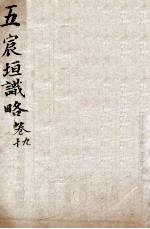 五 宸垣識略 卷九十